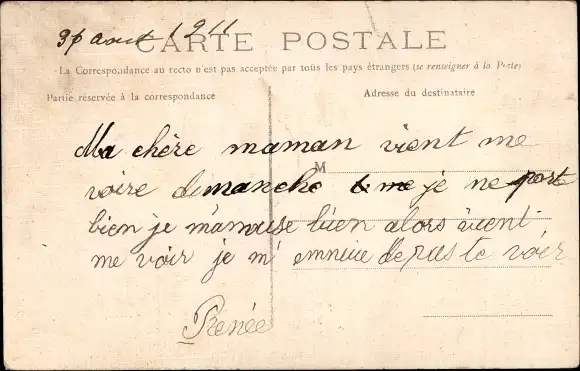 août 1911
CARTE POSTALE
La Correspondance au recto n'est pas acceptée par tous les pays étrangers (se renseigner à la Poste)
Partie réservée à la correspondance
Adresse du destinataire
Ma chère maman vient me
M
voire dimanche je ne port
bien je m'amuse bien alors vient
me voir je m' ennuie de pas te voir
Renée